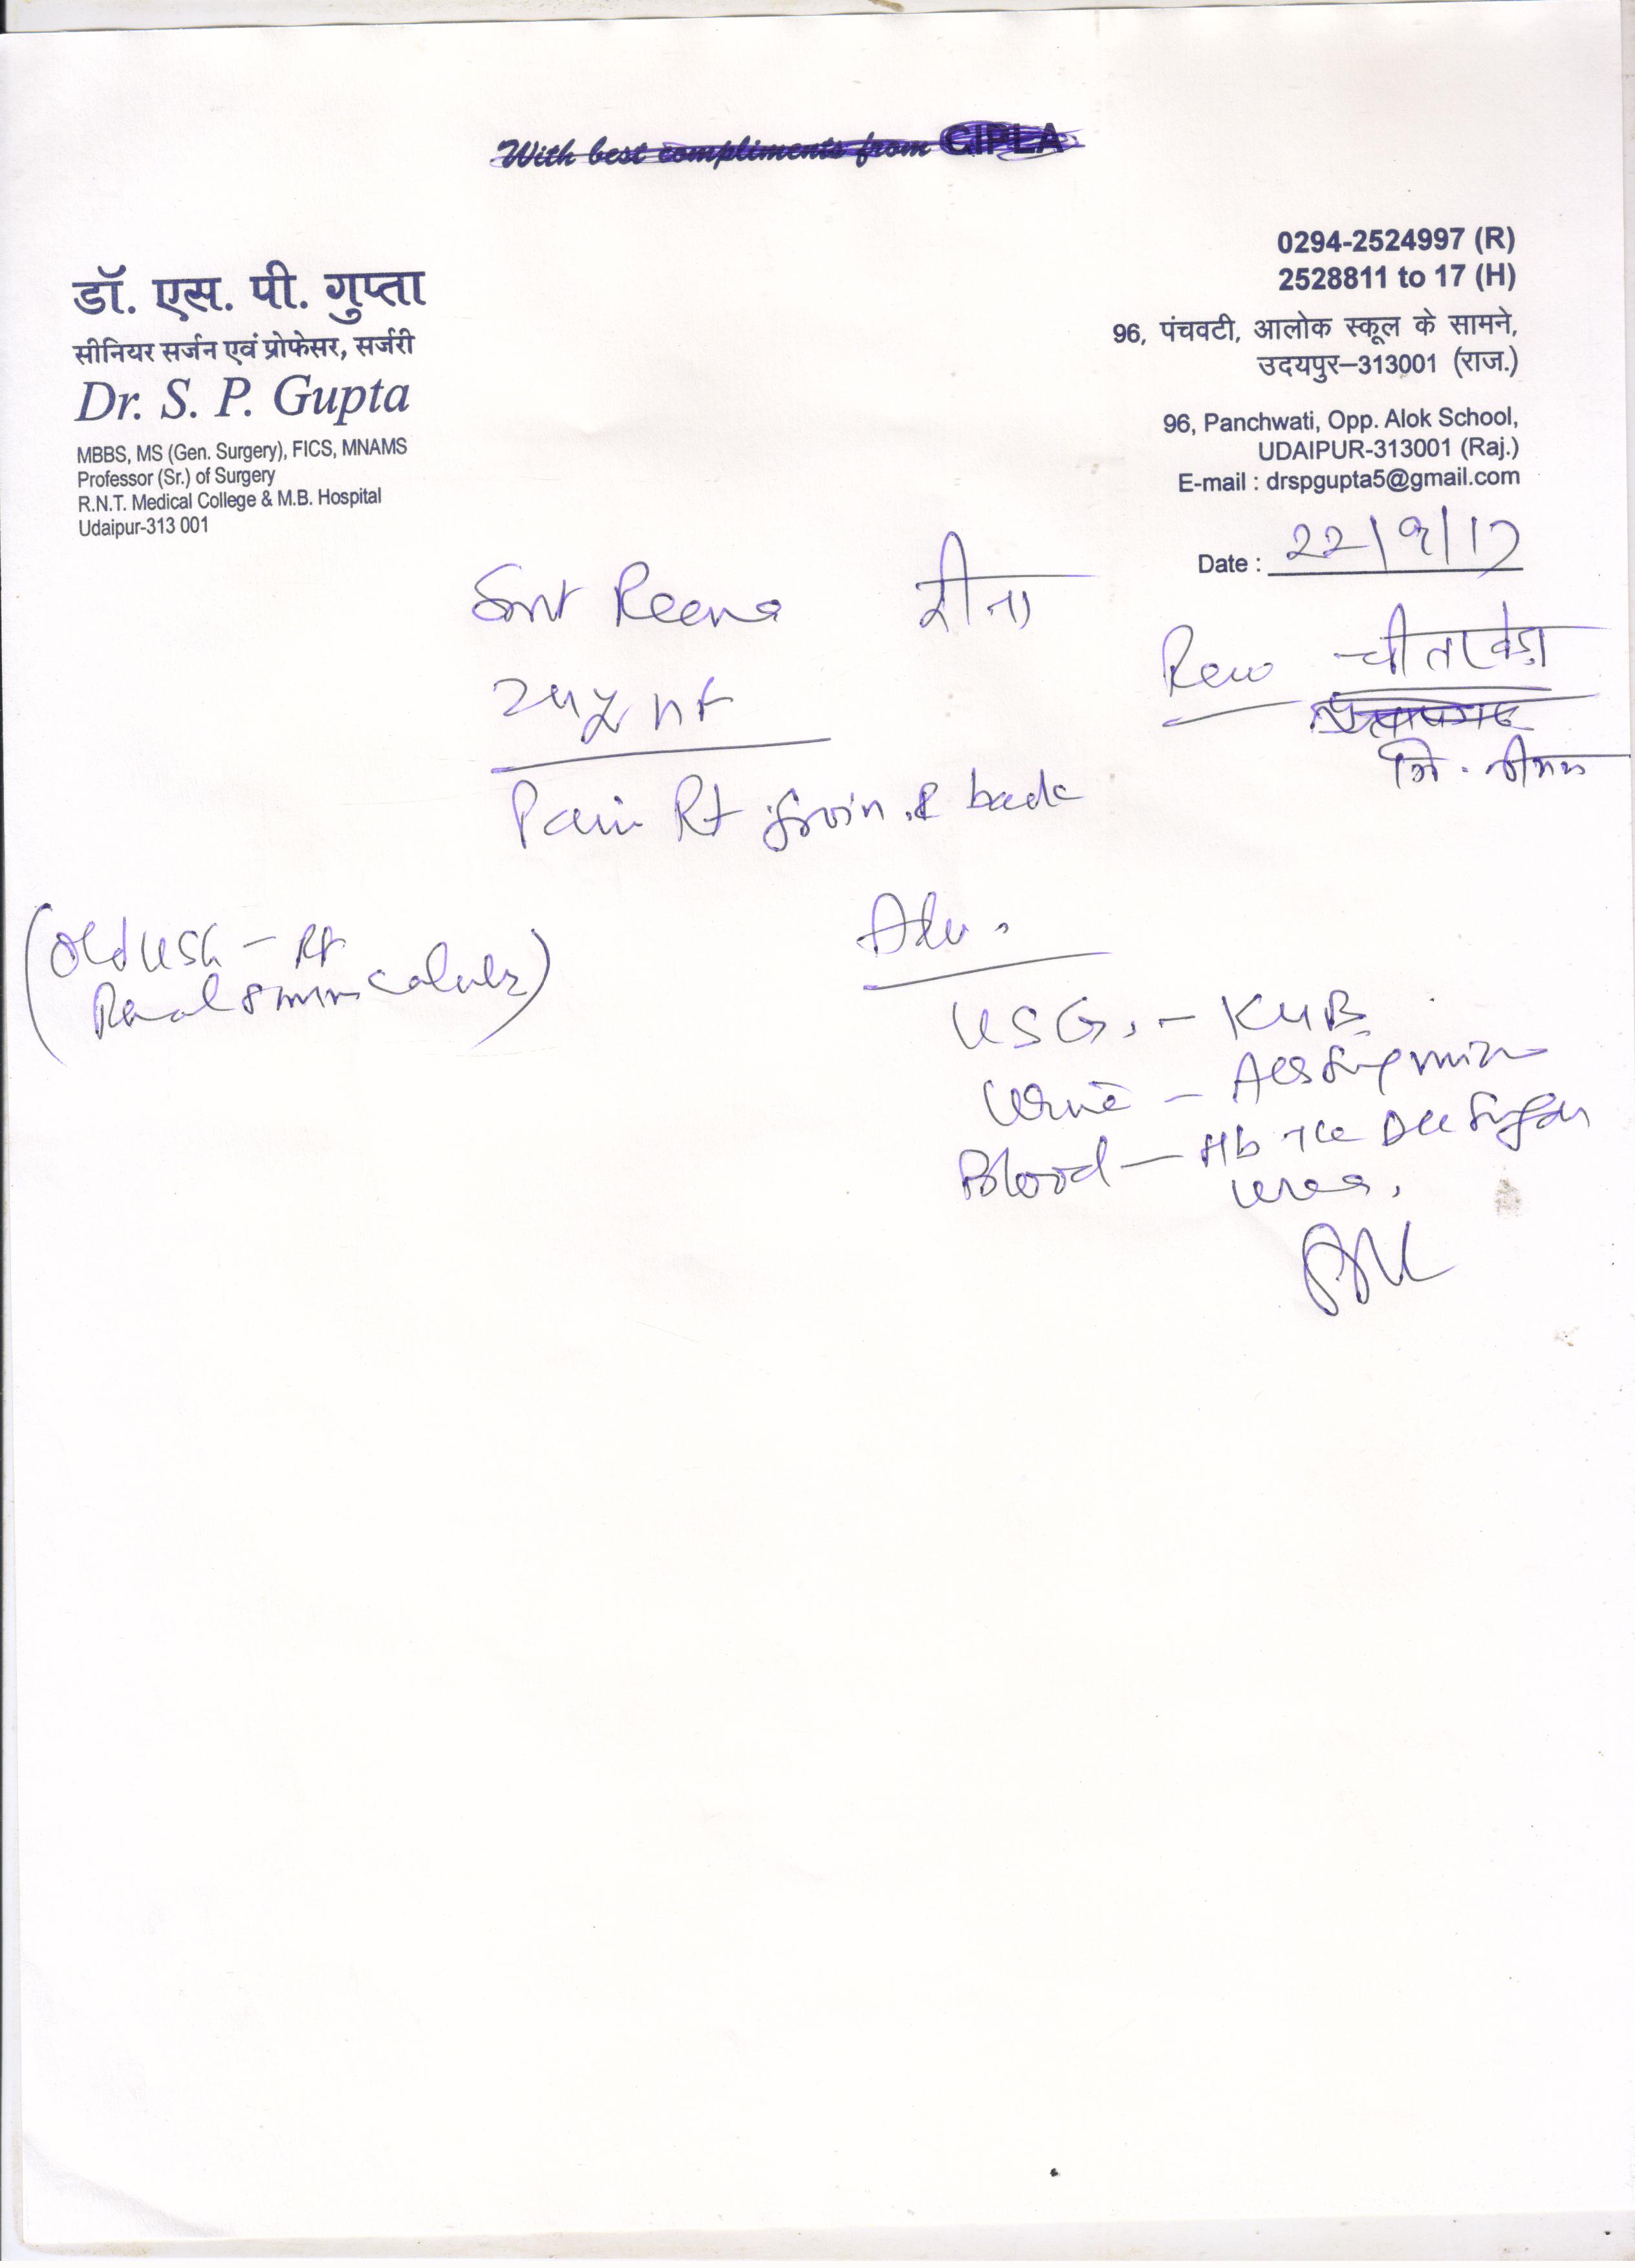 With best compliments from CIPLA
डॉ. एस. पी. गुप्ता
सीनियर सर्जन एवं प्रोफेसर, सर्जरी
Dr. S. P. Gupta
MBBS, MS (Gen. Surgery), FICS, MNAMS
Professor (Sr.) of Surgery
R.N.T. Medical College & M.B. Hospital
Udaipur-313 001
0294-2524997 (R)
2528811 to 17 (H)
96, पंचवटी, आलोक स्कूल के सामने,
उदयपुर–313001 (राज.)
96, Panchwati, Opp. Alok School,
UDAIPUR-313001 (Raj.)
E-mail : drspgupta5@gmail.com
Date : 22/9/17
Smt Reena रीना
चीताखेड़ा
जि. नीमच
Pain Rt groin & back
(Old USG - Rt
Renal 8 mm calculus)
Adv.
USG. - KUB
Urine - Alb Sug micro
Blood - Hb TLC DLC Sugar
Urea.